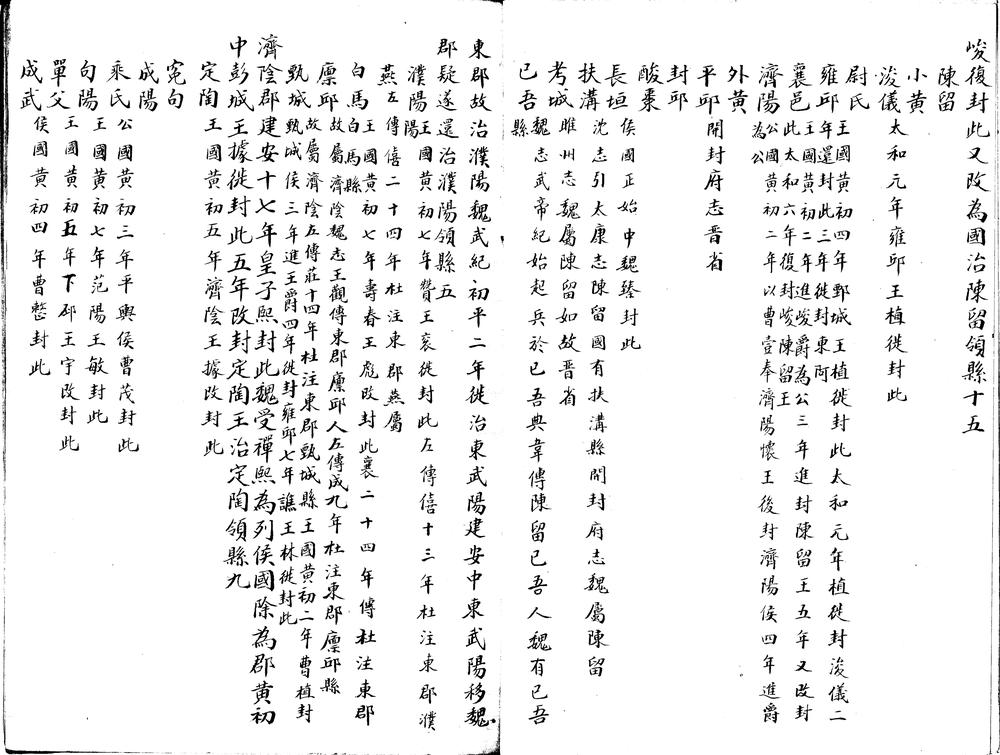 峻復封此又改為國治陳留領縣十五
陳留
小黃
浚儀太和元年雍邱王植徙封此
尉氏
雍邱王國黃初四年鄄城王植徙封此太和元年植徙封浚儀二
年還封此三年徙封東阿
襄邑王國黃初二年進峻爵為公三年進封陳留王五年又改封
此太和六年復封峻陳留王
濟陽公國黃初二年以曹壹奉濟陽懷王後封濟陽侯四年進爵
為公
外黃
平邱開封府志晋省
封邱
酸棗
長垣侯國正始中魏臻封此
扶溝沈志引太康志陳留國有扶溝縣開封府志魏屬陳留
考城睢州志魏屬陳留如故晋省
已吾魏志武帝紀始起兵於已吾典韋傳陳留已吾人魏有已吾
縣
東郡故治濮陽魏武紀初平二年徙治東武陽建安中東武陽移魏
郡疑遂還治濮陽領縣五
濮陽王國黃初七年贊王袞徙封此左傳僖十三年杜注東郡濮
陽
燕左傳僖二十四年杜注東郡燕屬
白馬王國黃初七年壽春王彪改封此襄二十四年傳杜注東郡
白馬縣
廪邱故屬濟陰魏志王觀傳東郡廪邱人左傳成九年杜注東郡廪邱縣
甄城故屬濟陰左傳莊十四年杜注東郡甄城縣王國黃初二年曹植封
甄城侯三年進王爵四年徙封雍邱七年譙王林徙封此
濟陰郡建安十七年皇子熙封此魏受禪熙為列侯國除為郡黃初
中彭城王據徙封此五年改封定陶王治定陶領縣九
定陶王國黃初五年濟陰王據改封此
寃句
成陽
乘氏公國黃初三年平輿侯曹茂封此
句陽王國黃初七年范陽王敏封此
單父王國黃初五年下邳王宇改封此
成武侯國黃初四年曹整封此